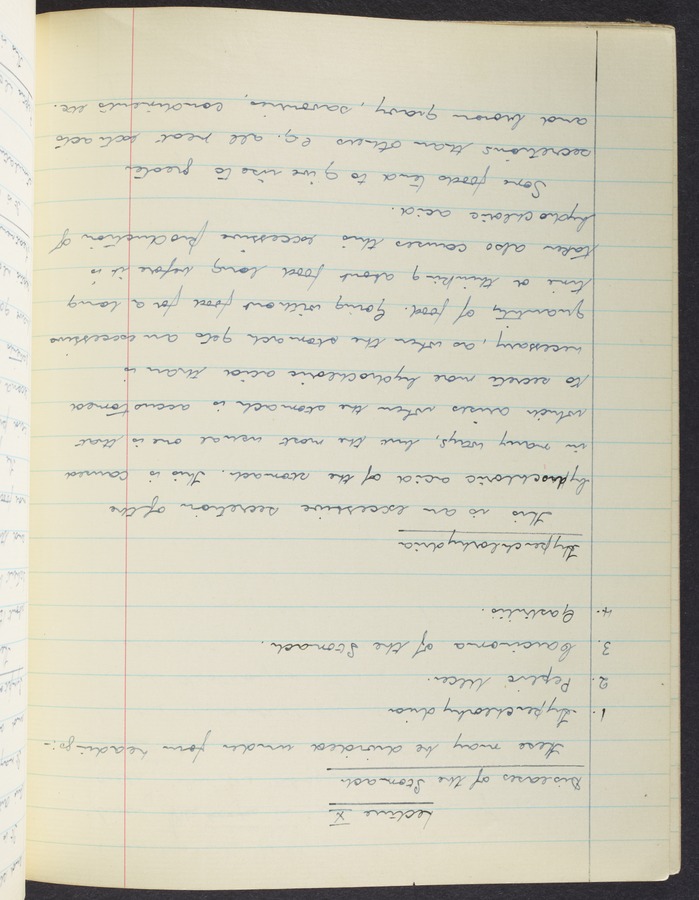 Lecture X
Diseases of the Stomach
These may be divided under four headings:-
1. Hyperchlorhydria
2. Peptic Ulcer.
3. Carcinoma of the Stomach.
4. Gastritis.
Hyperchlorhydria
This is an excessive secretion of the
hydrochloric acid of the stomach. This is caused
in many ways, but the most usual one is that
which arises when the stomach is accustomed
to secrete more hydrochloric acid than is
necessary, as when the stomach gets an excessive
quantity of food. Going without food for a long
time or thinking about food long before it is
taken also causes this excessive production of
hydrochloric acid.
Some foods tend to give rise to greater
secretions than others e.g. all meat extracts
and brown gravy, savouries, condiments etc.